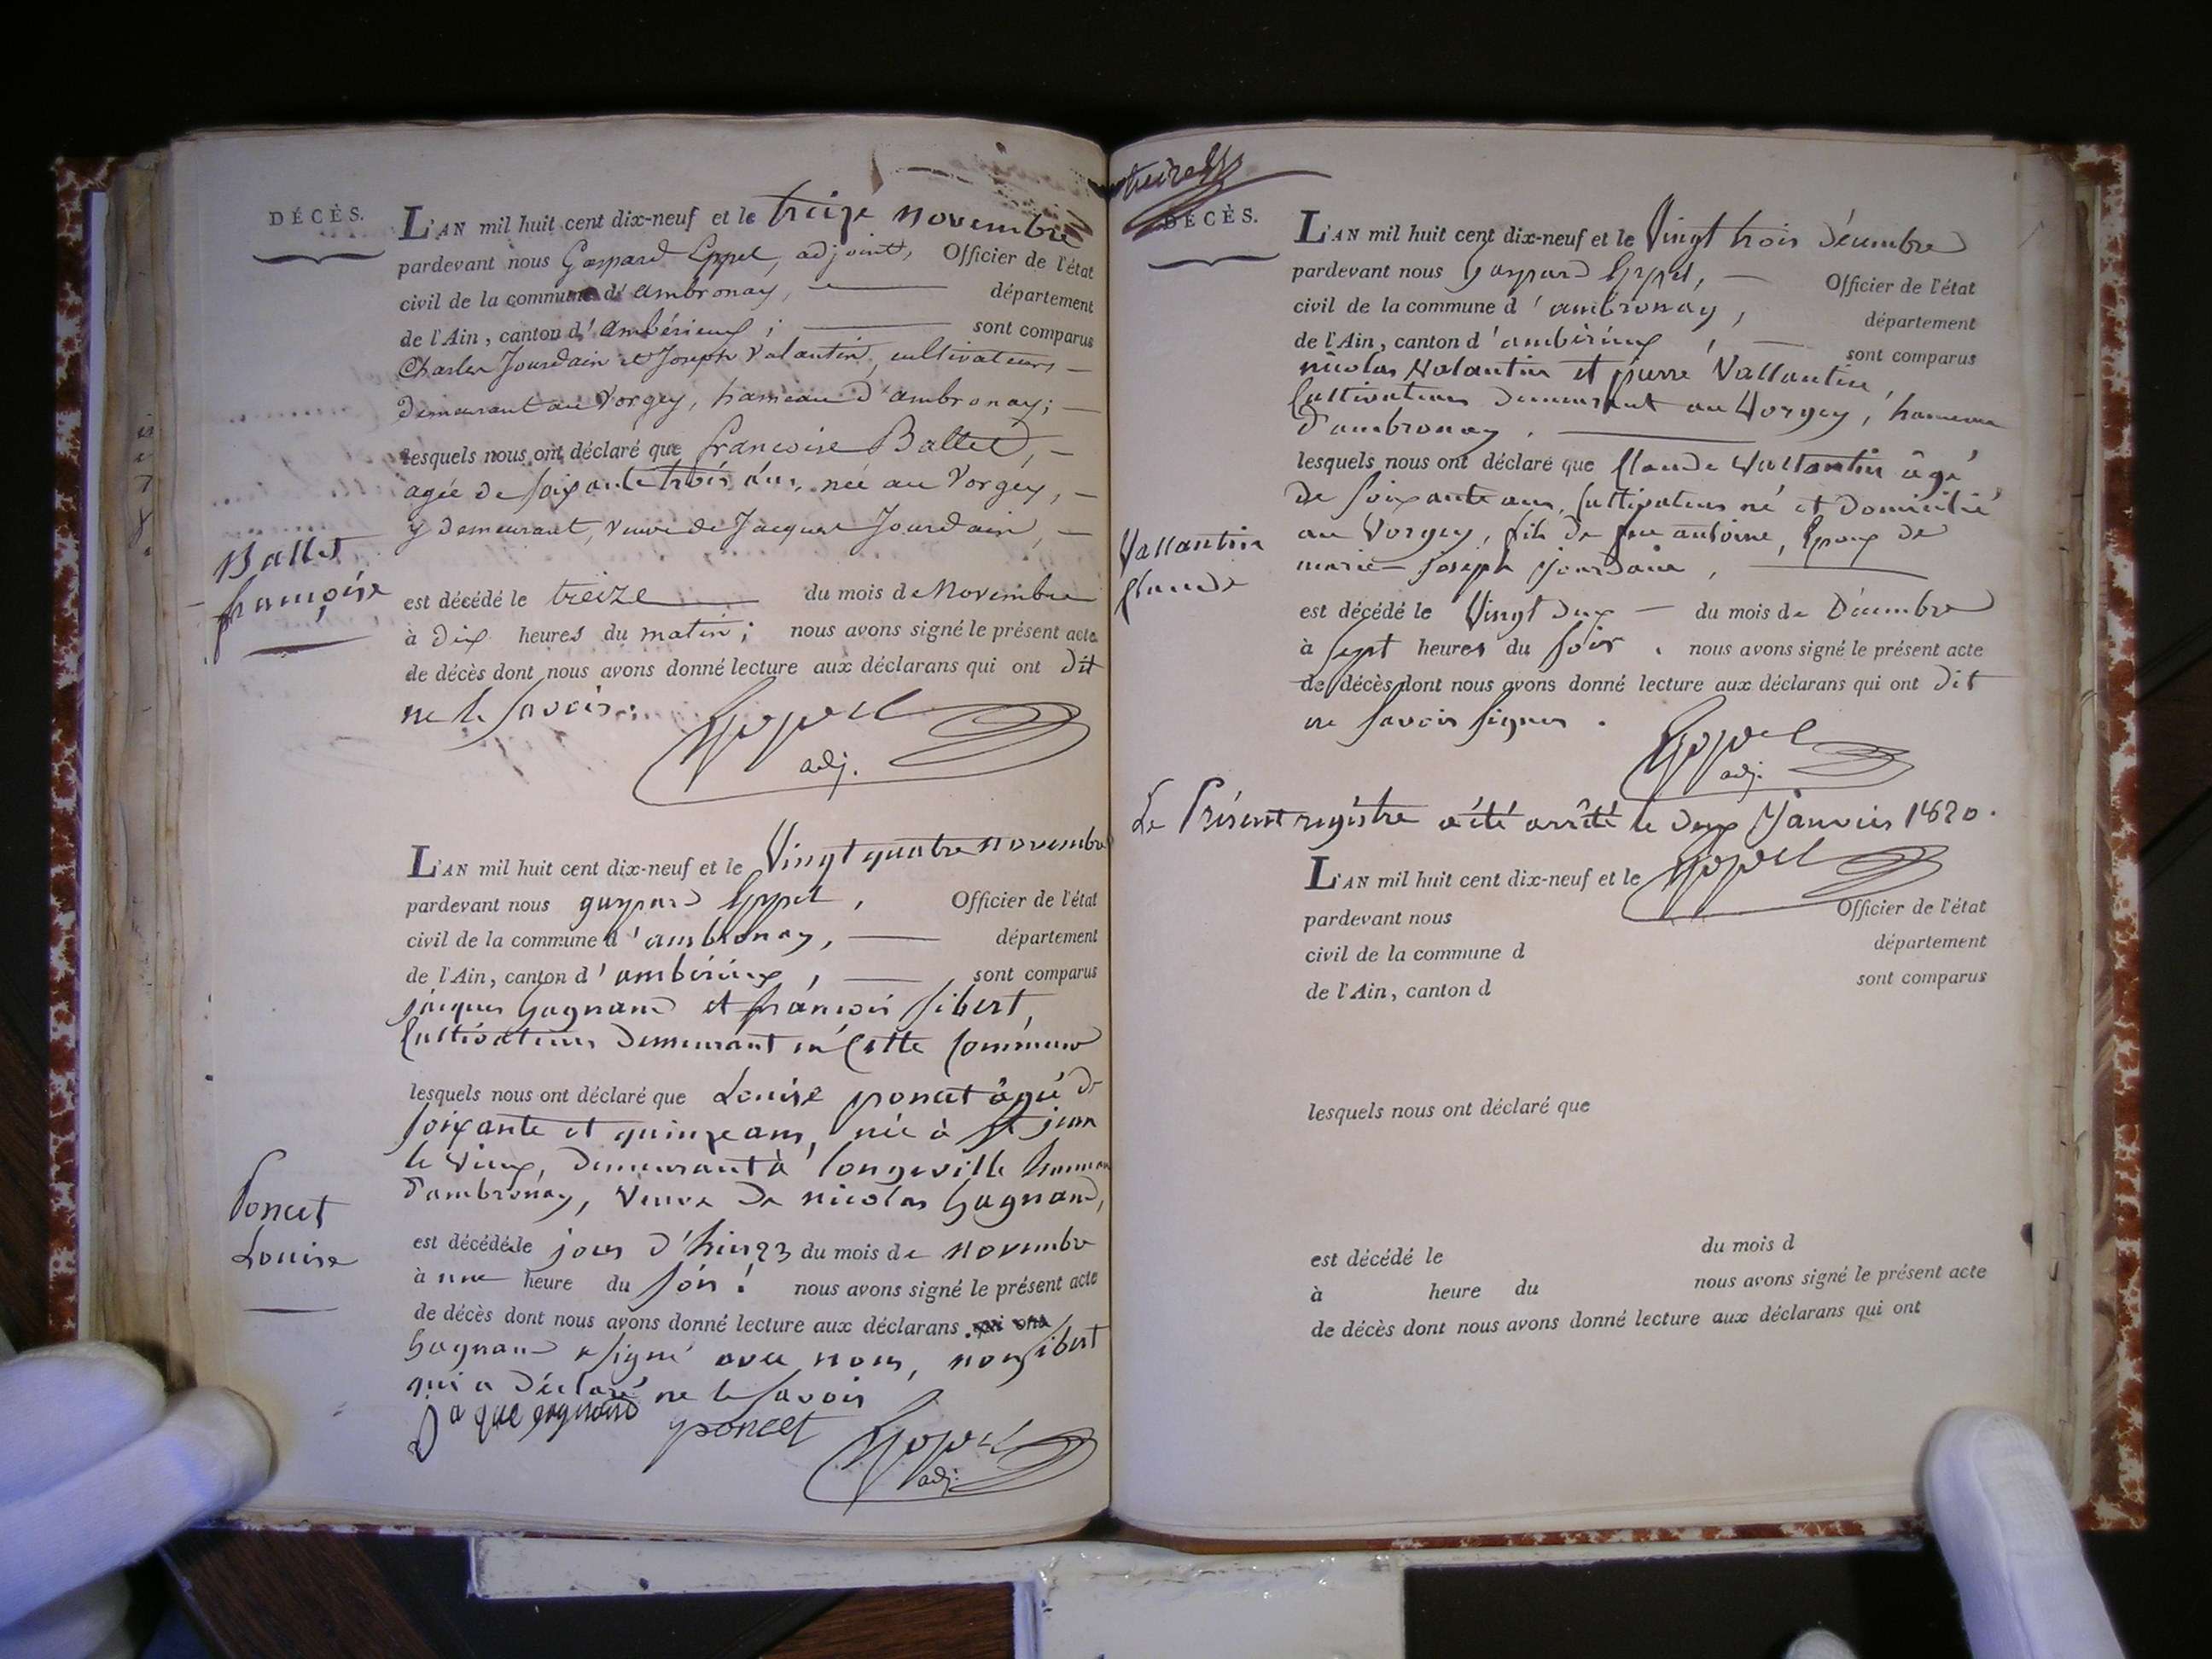 DÉCÈS.
L'AN mil huit cent dix-neuf et le treize novembre
pardevant nous Gaspard Eppel, adjoint, Officier de l'état
civil de la commune d'ambronay, département
de l'Ain, canton d'ambérieux ; sont comparus
Charles Jourdain et Joseph Valantin, cultivateurs
demeurant au Vorgey, hameau d'ambronay ;
lesquels nous ont déclaré que francoise Ballet,
agée de soixante trois ans, née au Vorgey,
y demeurant, veuve de Jacques Jourdain,
Ballet
françoise
est décédé le treize du mois de Novembre
à dix heures du matin ; nous avons signé le présent acte
de décès dont nous avons donné lecture aux déclarans qui ont dit
ne le savoir.
Eppel
adj.
L'AN mil huit cent dix-neuf et le Vingt quatre novembre
pardevant nous gaspard Eppel, Officier de l'état
civil de la commune d'ambronay, département
de l'Ain, canton d'ambérieux, sont comparus
jacques Gagnand et françois Sibert,
Cultivateurs demeurant en Cette Commune
lesquels nous ont déclaré que Louise poncet âgée de
soixante et quinze ans, née à St jean
le vieux, demeurant à longeville hameau
d'ambronay, veuve de nicolas Gagnand,
Poncet
Louise
est décédée le jour d'hier 23 du mois de novembre
à une heure du soir : nous avons signé le présent acte
de décès dont nous avons donné lecture aux déclarans. qui ont
Gagnand a signé avec nous, non Sibert
qui a déclaré ne le savoir
Jaque gagnand poncet Eppel
adj.
DÉCÈS.
L'AN mil huit cent dix-neuf et le Vingt trois décembre
pardevant nous Gaspard Eppel, Officier de l'état
civil de la commune d'ambronay, département
de l'Ain, canton d'ambérieux, sont comparus
nicolas Valantin et pierre Vallantin
Cultivateurs demeurant au Vorgey, hameau
d'ambronay.
lesquels nous ont déclaré que Claude Vallantin âgé
de soixante ans, Cultivateur né et domicilié
au Vorgey, fils de feu antoine, Epoux de
marie-Joseph Jourdain,
Vallantin
Claude
est décédé le Vingt deux du mois de Décembre
à sept heures du soir. nous avons signé le présent acte
de décès dont nous avons donné lecture aux déclarans qui ont dit
ne savoir signer.
Eppel
adj.
Le Présent registre a été arrêté le deux Janvier 1820.
Eppel
L'AN mil huit cent dix-neuf et le
pardevant nous Officier de l'état
civil de la commune d département
de l'Ain, canton d sont comparus
lesquels nous ont déclaré que
est décédé le du mois d
à heure du nous avons signé le présent acte
de décès dont nous avons donné lecture aux déclarans qui ont